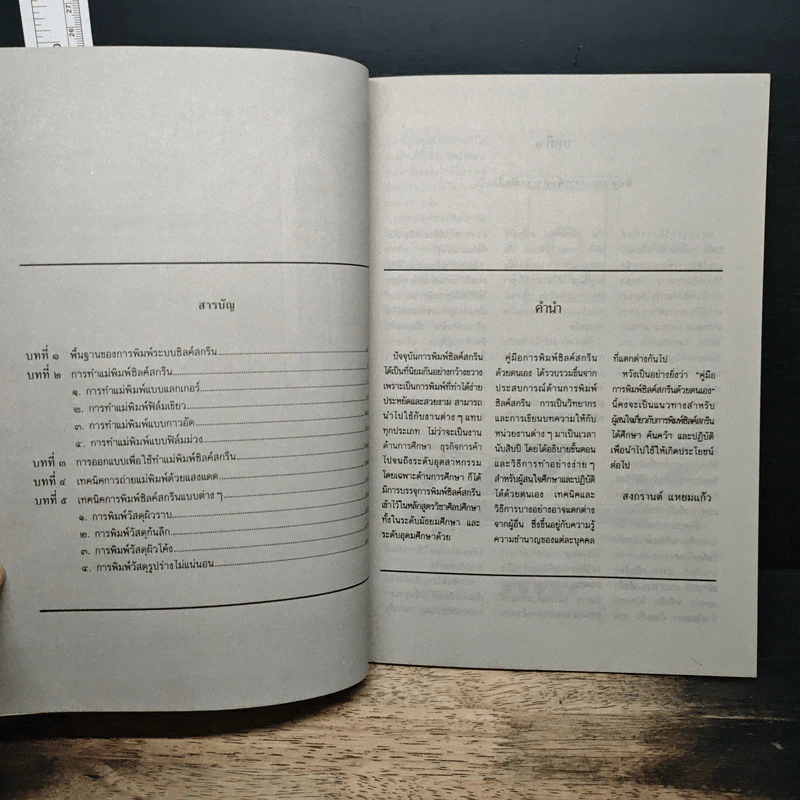 สารบัญ
บทที่ ๑ พื้นฐานของการพิมพ์ระบบซิลค์สกรีน
บทที่ ๒ การทำแม่พิมพ์ซิลค์สกรีน
๑. การทำแม่พิมพ์แบบแลกเกอร์
๒. การทำแม่พิมพ์ฟิล์มเขียว
๓. การทำแม่พิมพ์แบบกาวอัด
๔. การทำแม่พิมพ์แบบฟิล์มม่วง
บทที่ ๓ การออกแบบเพื่อใช้ทำแม่พิมพ์ซิลค์สกรีน
บทที่ ๔ เทคนิคการถ่ายแม่พิมพ์ด้วยแสงแดด
บทที่ ๕ เทคนิคการพิมพ์ซิลค์สกรีนแบบต่าง ๆ
๑. การพิมพ์วัสดุผิวราบ
๒. การพิมพ์วัสดุก้นลึก
๓. การพิมพ์วัสดุผิวโค้ง
๔. การพิมพ์วัสดุรูปร่างไม่แน่นอน
คำนำ
ปัจจุบันการพิมพ์ซิลค์สกรีน
ได้เป็นที่นิยมกันอย่างกว้างขวาง
เพราะเป็นการพิมพ์ที่ทำได้ง่าย
ประหยัดและสวยงาม สามารถ
นำไปใช้กับงานต่าง ๆ แทบ
ทุกประเภท ไม่ว่าจะเป็นงาน
ด้านการศึกษา ธุรกิจการค้า
ไปจนถึงระดับอุตสาหกรรม
โดยเฉพาะด้านการศึกษา ก็ได้
มีการบรรจุการพิมพ์ซิลค์สกรีน
เข้าไว้ในหลักสูตรวิชาศิลปศึกษา
ทั้งในระดับมัธยมศึกษา และ
ระดับอุดมศึกษาด้วย
คู่มือการพิมพ์ซิลค์สกรีน
ด้วยตนเอง ได้รวบรวมขึ้นจาก
ประสบการณ์ด้านการพิมพ์
ซิลค์สกรีน การเป็นวิทยากร
และการเขียนบทความให้กับ
หน่วยงานต่าง ๆ มาเป็นเวลา
นับสิบปี โดยได้อธิบายขั้นตอน
และวิธีการทำอย่างง่าย ๆ
สำหรับผู้สนใจศึกษาและปฏิบัติ
ได้ด้วยตนเอง เทคนิคและ
วิธีการบางอย่างอาจแตกต่าง
จากผู้อื่น ซึ่งขึ้นอยู่กับความรู้
ความชำนาญของแต่ละบุคคล
ที่แตกต่างกันไป
หวังเป็นอย่างยิ่งว่า "คู่มือ
การพิมพ์ซิลค์สกรีนด้วยตนเอง"
นี้คงจะเป็นแนวทางสำหรับ
ผู้สนใจเกี่ยวกับการพิมพ์ซิลค์สกรีน
ได้ศึกษา ค้นคว้า และปฏิบัติ
เพื่อนำไปใช้ให้เกิดประโยชน์
ต่อไป
สงกรานต์ แหยมแก้ว